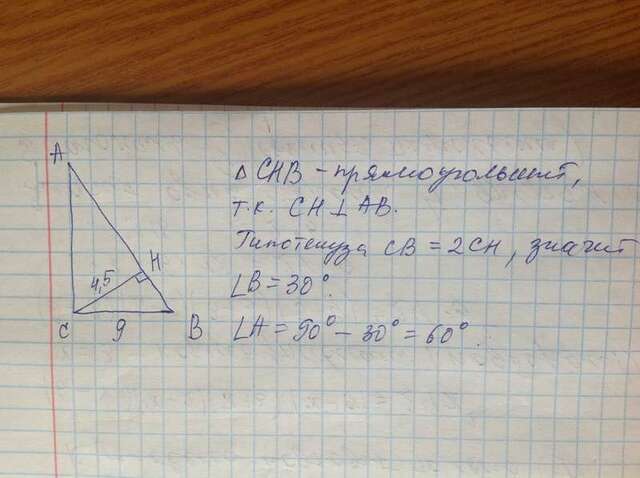 A
H
4,5
C
9
B
Δ CHB – прямоугольный,
т.к. CH ⊥ AB.
Гипотенуза CB = 2CH, значит
∠B = 30°.
∠A = 90° – 30° = 60°.